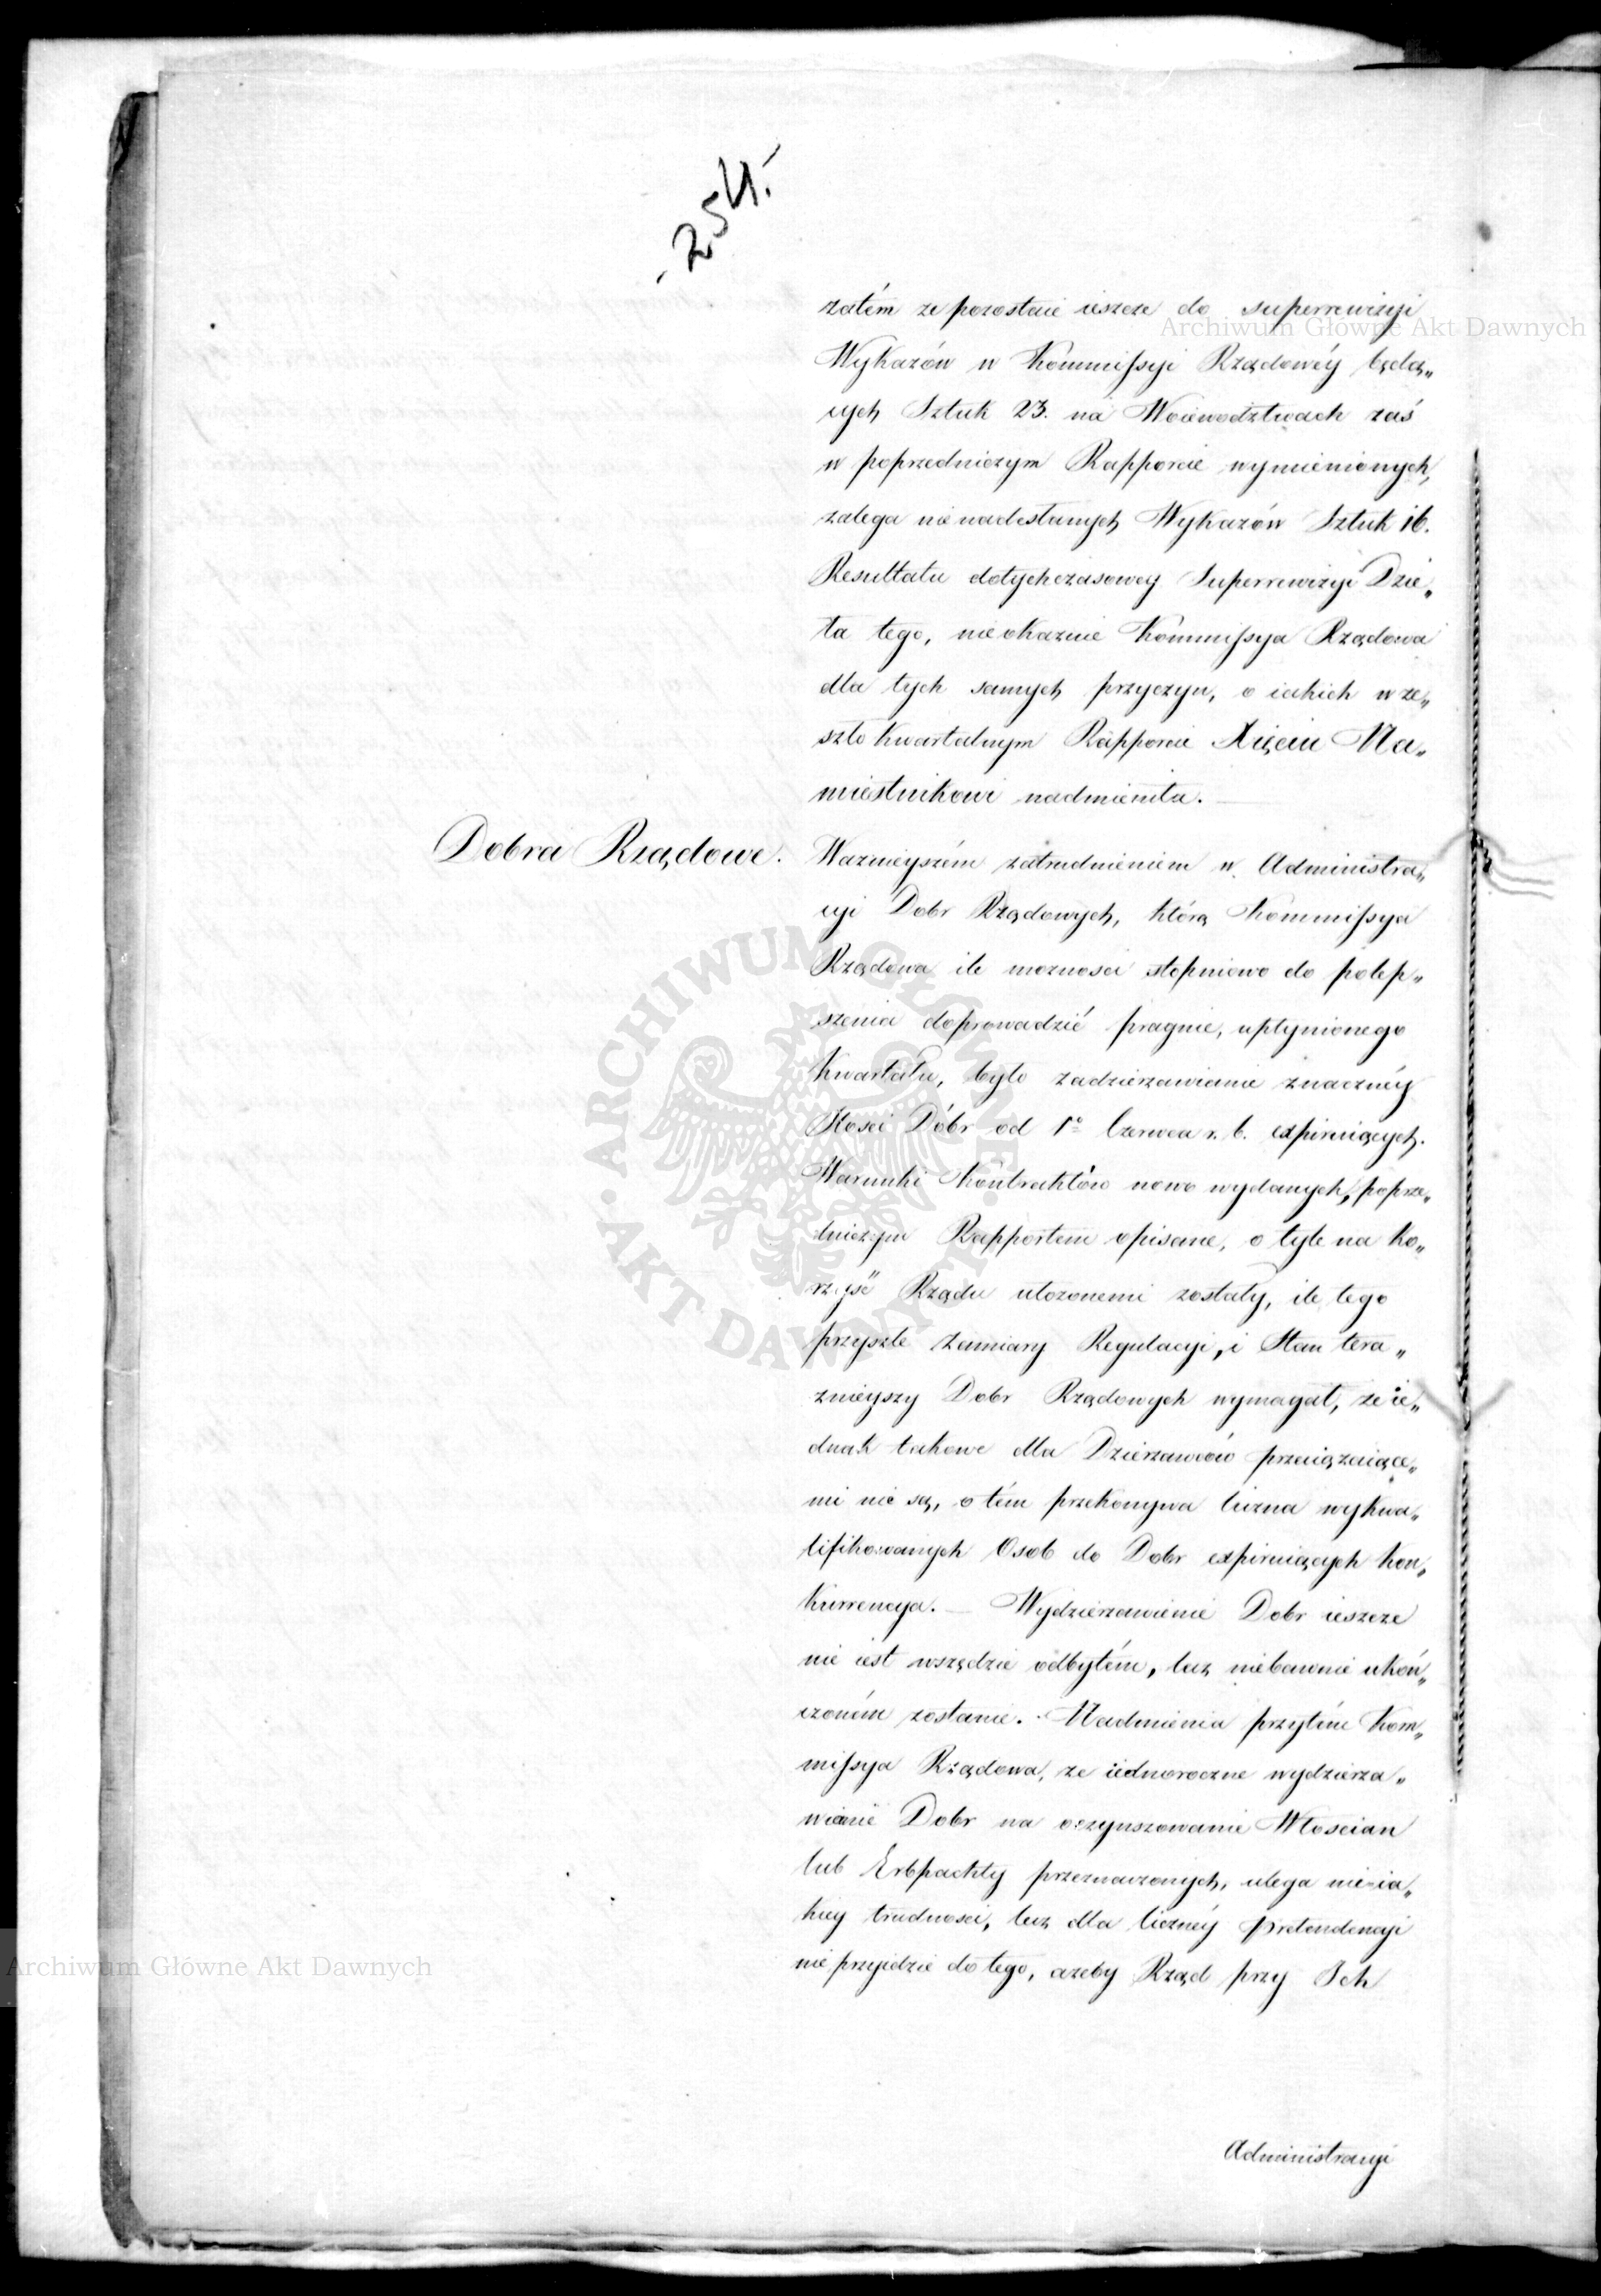 - 254. -
zatém ze pozostaie ieszcze do superrewizyi
Wykazów w Kommissyi Rządowéy będą„
cych Sztuk 23. na Woiewodztwach zaś
w poprzedniczym Rapporcie wymienionych,
zalega nienadesłanych Wykazów Sztuk 16.
Resultatu dotychczasowey Superrewizyi Dzie„
ła tego, nieokazuie Kommissya Rządowa
dla tych samych przyczyn, o iakich w ze„
szło kwartalnym Rapporcie Xięciu Na„
miestnikowi nadmieniła. —
Dobra Rządowe.
Ważnieyszém zatrudnieniem w Administra„
cyi Dobr Rządowych, którą Kommissya
Rządowa ile moznosci stopniowo do polep„
szenia doprowadzić pragnie, upłynionego
Kwartału, było zadzierzawianie znacznéy
Ilosci Dóbr od 1o Czerwca r. b. expiruiących.
Warunki Kontraktów nowo wydanych, poprze„
dniczym Rapportem opisane, o tyle na ko„
rzyść Rządu ułozonemi zostały, ile tego
przyszłe zamiary Regulacyi, i Stan tera„
znieyszy Dobr Rządowych wymagał, że ie„
dnak takowe dla Dzierzawców przeciązaiące„
mi nie są, o tém przekonywa liczna wykwa„
lifikowanych Osob do Dobr expiruiących Kon„
kurrencya. — Wydzierzawienie Dobr ieszcze
nie iest wszędzie odbytém, lecz niebawnie ukoń„
czoném zostanie. Nadmienia przytém Kom„
missya Rządowa, ze iednoroczne wydzierza„
wianie Dobr na oczynszowanie Włoscian
lub Erbpachty przeznaczonych, ulega nieia„
kiey trudnosci, lecz dla licznéy pretendencyi
nie przyidzie do tego, azeby Rząd przy Ich
Administracyi
Archiwum Główne Akt Dawnych
Archiwum Główne Akt Dawnych
ARCHIWUM GŁÓWNE · AKT DAWNYCH ·